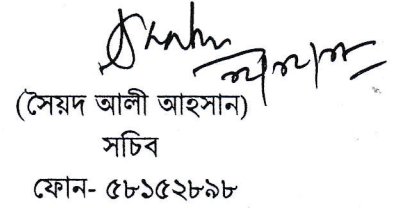 (সৈয়দ আলী আহসান)
সচিব
ফোন- ৫৮১৫২৮৯৮